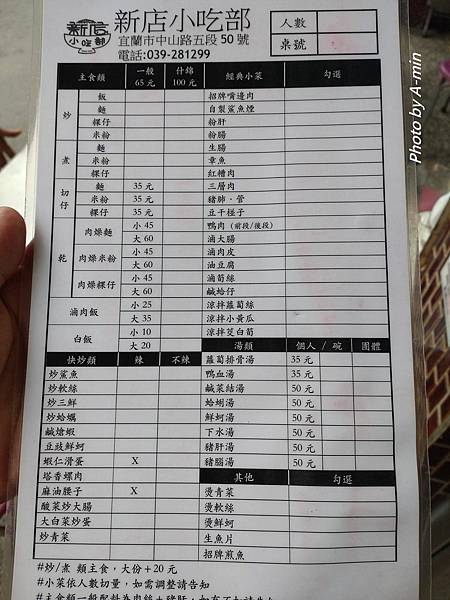 新店
小吃部
新店小吃部
宜蘭市中山路五段50號
電話:039-281299
人數
桌號
主食類 一般 65元 什錦 100元 經典小菜 勾選
炒 飯 招牌嘴邊肉
麵 自製鯊魚煙
粿仔 粉肝
米粉 粉腸
煮 麵 生腸
米粉 章魚
粿仔 紅糟肉
切仔 麵 35元 三層肉
米粉 35元 豬肺.管
粿仔 35元 豆干椏子
乾 肉燥麵 小45 鴨肉 (前段/後段)
大60 滷大腸
肉燥米粉 小45 滷肉皮
大60 油豆腐
肉燥粿仔 小45 滷筍絲
大60 鹹蛤仔
滷肉飯 小25 涼拌蘿蔔絲
大35 涼拌小黃瓜
白飯 小10 涼拌茭白筍
大20 湯類 個人/碗 團體
快炒類 辣 不辣 蘿蔔排骨湯 35元
炒鯊魚 鴨血湯 35元
炒軟絲 鹹菜結湯 50元
炒三鮮 蛤蜊湯 50元
炒蛤蠣 鮮蚵湯 50元
鹹熗蝦 下水湯 50元
豆豉鮮蚵 豬肝湯 50元
蝦仁滑蛋 X 豬腦湯 50元
塔香螺肉 其他 勾選
麻油腰子 X 燙青菜
酸菜炒大腸 燙軟絲
大白菜炒蛋 燙鮮蚵
炒青菜 生魚片
招牌煎魚
#炒/煮 類主食,大份+20元
#小菜依人數切量,如需調整請告知
#主食類一般配料為肉絲+豬肝,如有不
Photo by A-min